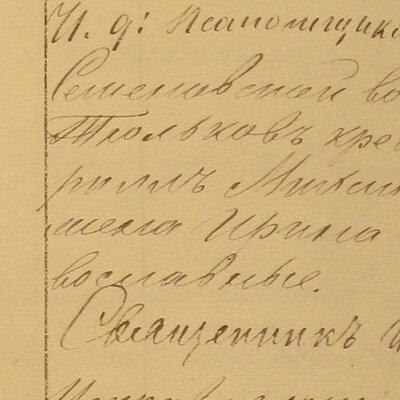 И. д: Псаломщика
Семеновской во
Тюльковъ кре
риллъ Макси
жена Ирина
вославные.
Священникъ